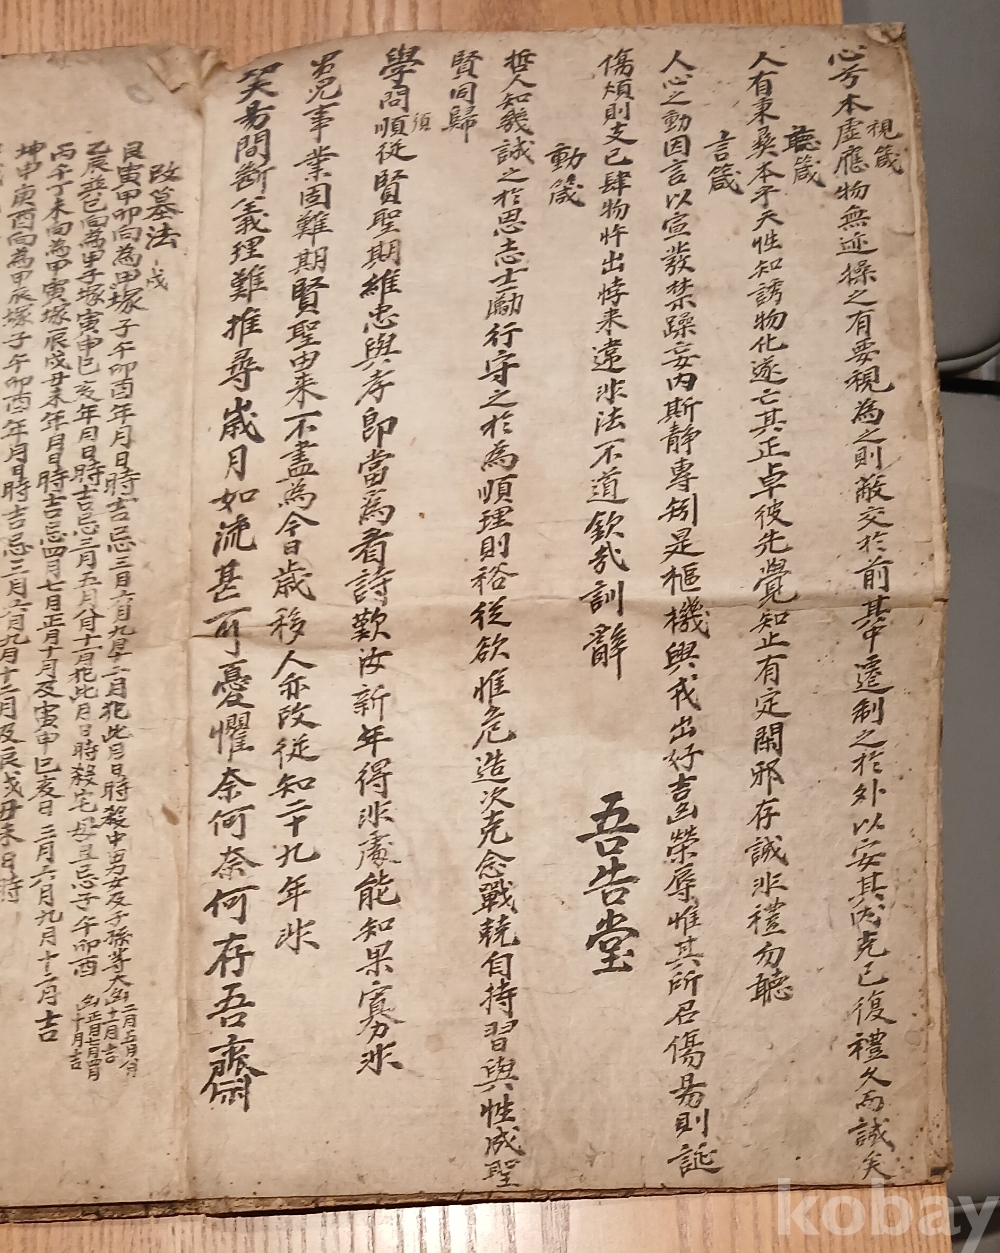 視箴
心兮本虛應物無迹操之有要視為之則蔽交於前其中遷制之於外以安其內克己復禮久而誠矣
聽箴
人有秉彛本乎天性知誘物化遂亡其正卓彼先覺知止有定閑邪存誠非禮勿聽
言箴
人心之動因言以宣發禁躁妄內斯靜專矧是樞機興戎出好吉凶榮辱惟其所召傷易則誕
傷煩則支已肆物忤出悖来違非法不道欽㢤訓辭
吾告堂
動箴
哲人知幾誠之於思志士勵行守之於為順理則裕從欲惟危造次克念戰兢自持習與性成聖
賢同歸
學問順從賢聖期維忠與孝即當為看詩歎汝新年得非處能知果寡非
須
男兒事業固難期賢聖由来不盡為今日歲移人亦改從知二十九年非
笑昜間斷義理難推尋歲月如流甚可憂懼奈何奈何存吾齋
改墓法
戌
艮寅甲卯向為甲塚子午卯酉年月日時吉忌三月六月九月十二月犯此月日時殺中男女及子孫等大凶
二月五月八月
十一月吉
乙辰巽巳向為甲子塚寅申巳亥年月日時吉忌三月五月八月十一月犯此月日時殺宅母且忌子午卯酉
凶正月七月四月
十月吉
丙午丁未向為甲寅塚辰戌丑未年月日時吉忌四月七月正月十月及寅申巳亥日三月六月九月十二月吉
坤申庚酉向為甲辰塚子午卯酉年月日時吉忌三月六月九月十二月及辰戌丑未日時
kobay